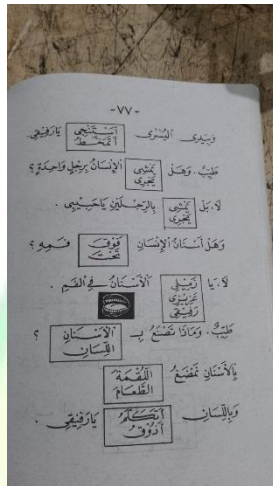 -٧٧-
وَبِيَدِى الْيُسْرَى
أَسْتَنْجِى
أَتَمَخَّطُ
يَارَفِيْقِى.
طَيِّبْ. وَهَلْ
يَمْشِى
يَجْرِى
الْإِنْسَانُ بِرِجْلٍ وَاحِدَةٍ؟
لَا. بَلْ
يَمْشِى
يَجْرِى
بِالرِّجْلَيْنِ يَاحَبِيْبِى.
وَهَلْ أَسْنَانُ الْإِنْسَانِ
فَوْقَ
تَحْتَ
فَمِهِ؟
لَا. يَا
زَمِيْلِى
عَزِيْزِى
رَفِيْقِى
اَلْأَسْنَانُ فِى الْفَمِ.
طَيِّبْ. وَمَاذَا تَصْنَعُ بِـ
الْأَسْنَانِ
اللِّسَانِ
؟
بِالْأَسْنَانِ نَمْضَغُ
اللُّقْمَةَ
الطَّعَامَ
وَبِاللِّسَانِ
أَتَكَلَّمُ
أَذُوْقُ
يَارَفِيْقِى.